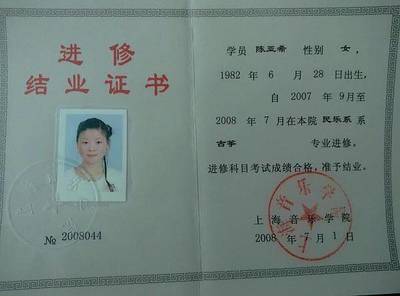 进修
结业证书
№ 2008044
学员 陈亚希 性别 女，
1982 年 6 月 28 日出生，
自 2007 年 9月至
2008 年 7 月在本院 民乐系 系
古筝 专业进修。
进修科目考试成绩合格，准予结业。
上海音乐学院
2008 年 7 月 1 日
上海音乐学院